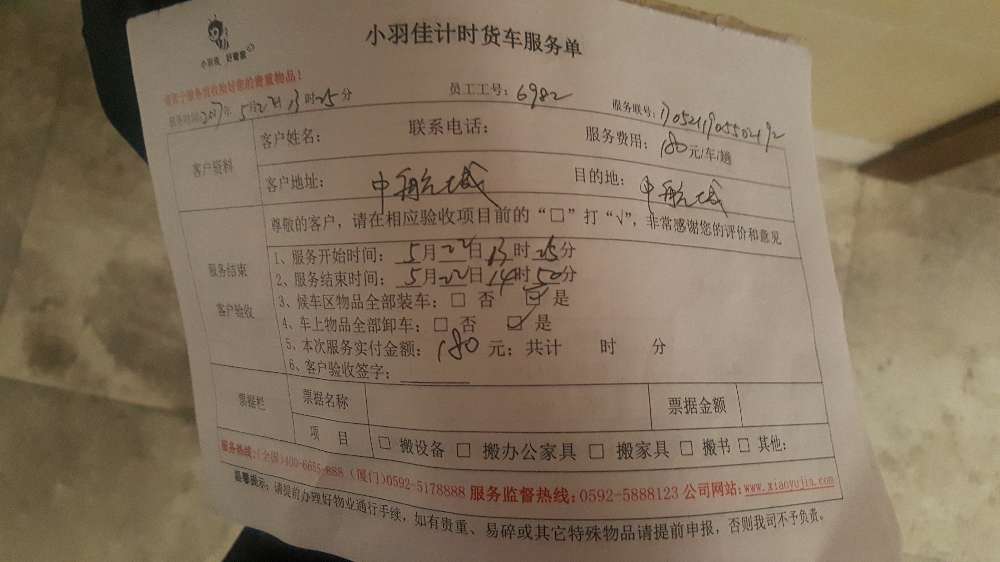 小羽佳计时货车服务单
小羽佳 好管家
请您于服务前收拾好您的贵重物品！
服务时间2017年5月22日13时25分 员工工号：6982 服务联号：1705211905502192
客户资料
客户姓名： 联系电话： 服务费用：180元/车/趟
客户地址：中航城 目的地：中航城
尊敬的客户，请在相应验收项目前的“□”打“√”，非常感谢您的评价和意见
服务结束
客户验收
1、服务开始时间：5月22日13时25分
2、服务结束时间：5月22日14时50分
3、候车区物品全部装车：□ 否 ☑ 是
4、车上物品全部卸车：□ 否 ☑ 是
5、本次服务实付金额：180元；共计 时 分
6、客户验收签字：
票据栏 票据名称 票据金额
项 目 □ 搬设备 □ 搬办公家具 □ 搬家具 □ 搬书 □ 其他：
服务热线：(全国)400-6655-888 (厦门)0592-5178888 服务监督热线：0592-5888123 公司网站：www.xiaoyujia.com
温馨提示：请提前办理好物业通行手续，如有贵重、易碎或其它特殊物品请提前申报，否则我司不予负责。